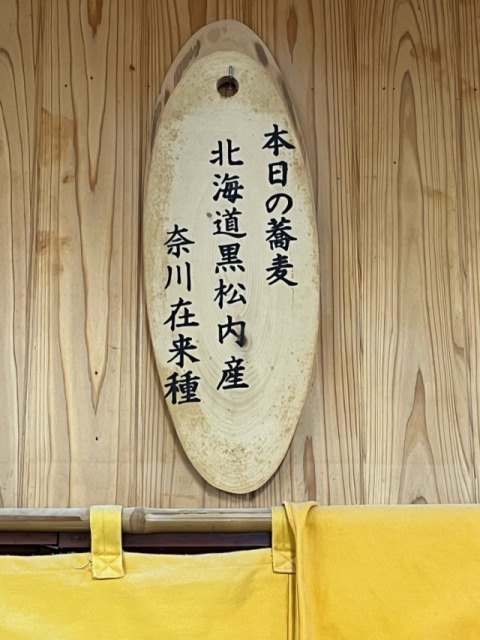 本日の蕎麦
北海道黒松内産
奈川在来種